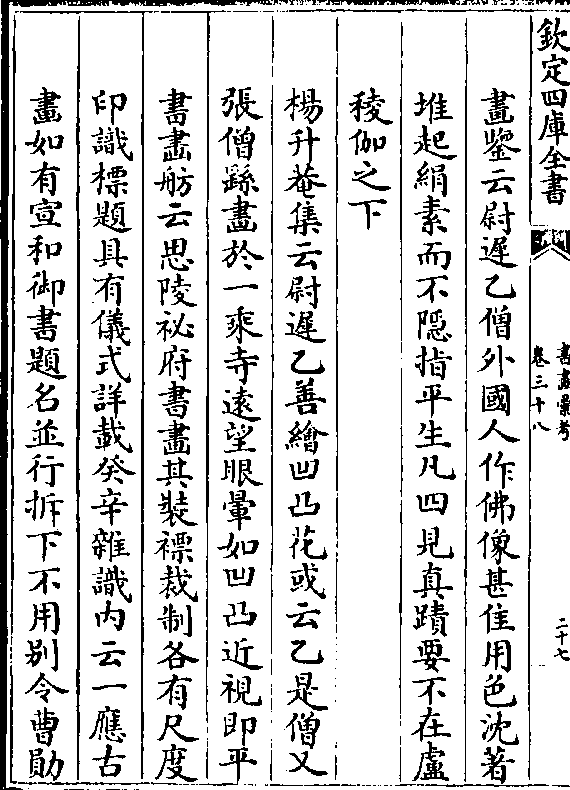 欽定四庫全書
書畫彙考
卷三十八
二十七
畫鑒云尉遲乙僧外國人作佛像甚佳用色沈著
堆起絹素而不隠指平生凡四見真蹟要不在盧
稜伽之下
楊升菴集云尉遲乙善繪凹凸花或云乙是僧又
張僧繇畫於一乘寺逺望眼暈如凹凸近視即平
書畫舫云思陵祕府書畫其裝褾裁制各有尺度
印識標題具有儀式詳載癸辛雜識内云一應古
畫如有宣和御書題名並行拆下不用别令曹勛